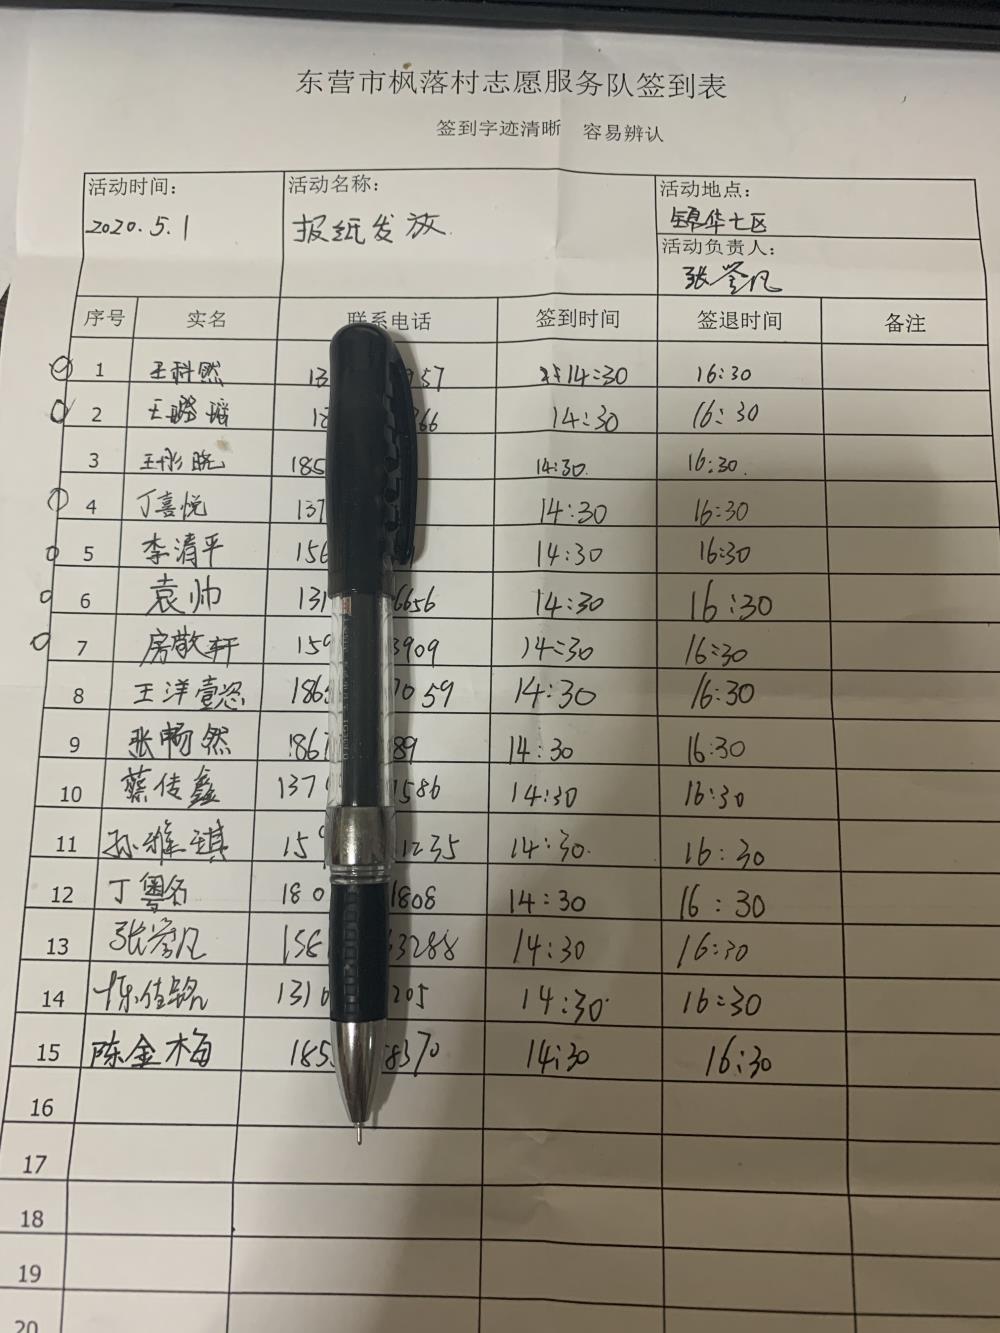 东营市枫落村志愿服务队签到表
签到字迹清晰 容易辨认
活动时间: 活动名称: 活动地点:
2020.5.1 报纸发放 锦华七区
活动负责人:
张誉凡
序号 实名 联系电话 签到时间 签退时间 备注
1 王科然 13 957 14:30 16:30
2 王璐瑶 18 366 14:30 16:30
3 王彤晓 185 14:30 16:30
4 丁喜悦 137 14:30 16:30
5 李清平 156 14:30 16:30
6 袁帅 131 6656 14:30 16:30
7 房敬轩 159 3909 14:30 16:30
8 王洋壹 186 7059 14:30 16:30
9 张畅然 1867 89 14:30 16:30
10 蔡传鑫 137 1586 14:30 16:30
11 孙雅琪 159 1235 14:30 16:30
12 丁粤名 180 1808 14:30 16:30
13 张誉凡 156 3288 14:30 16:30
14 陈佳铭 1310 205 14:30 16:30
15 陈金梅 185 8370 14:30 16:30
16
17
18
19
20